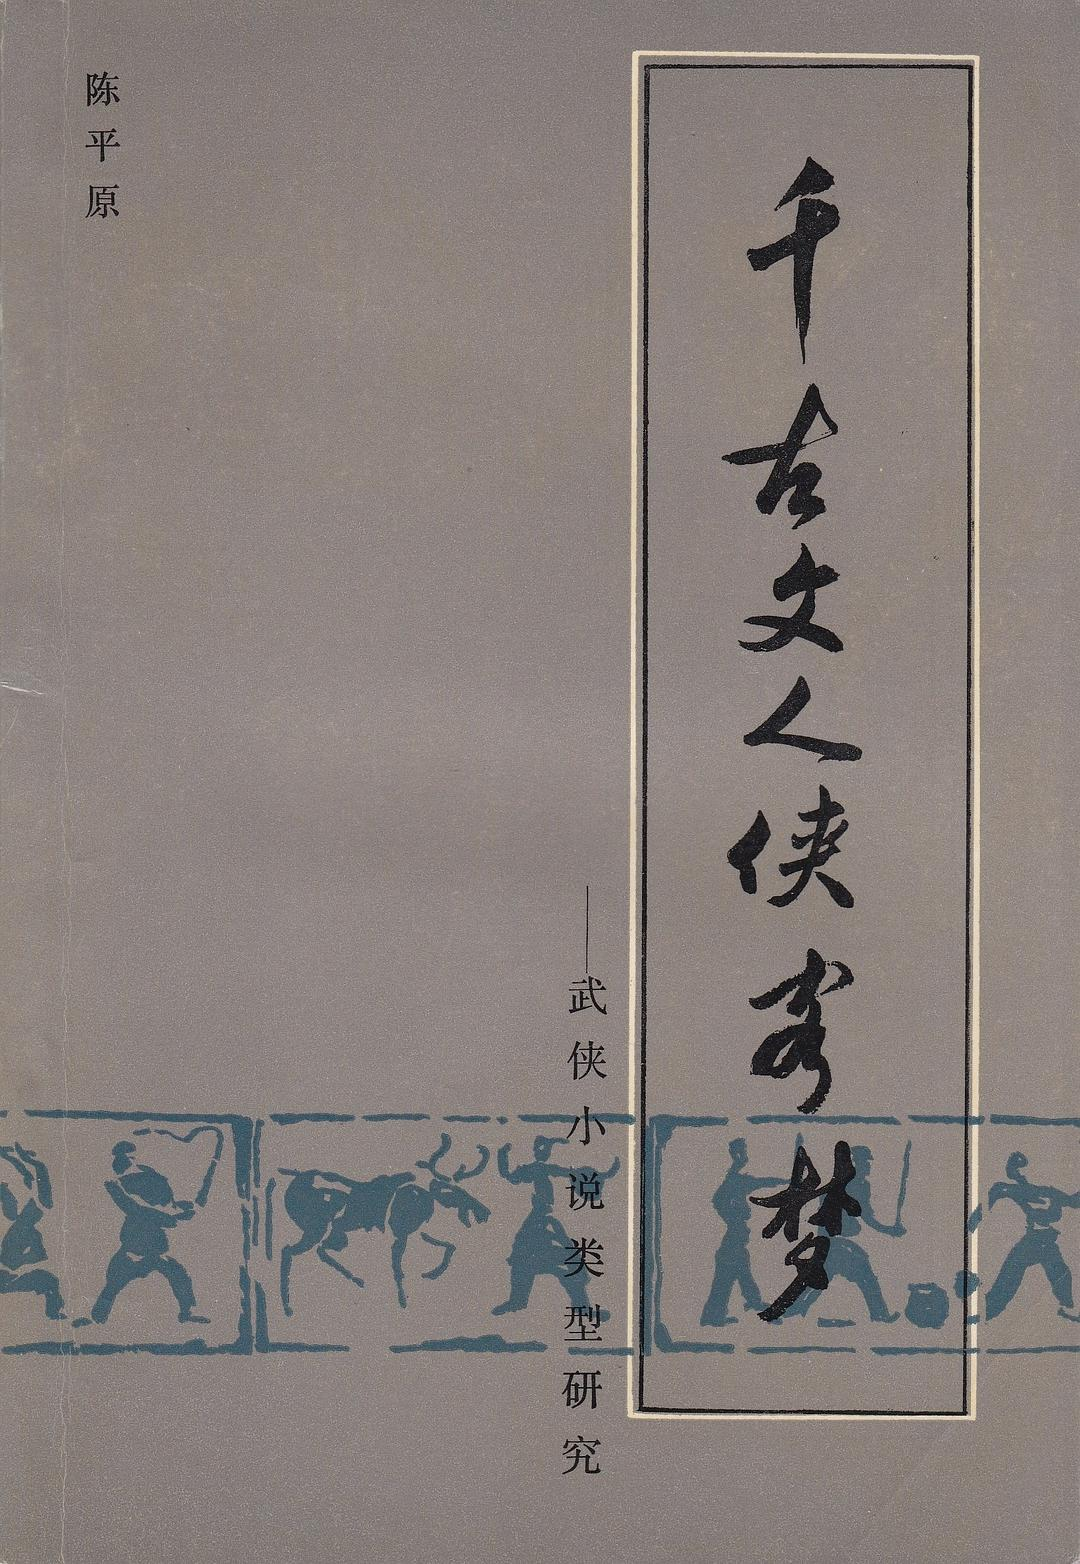 千古文人侠客梦
——武侠小说类型研究
陈平原